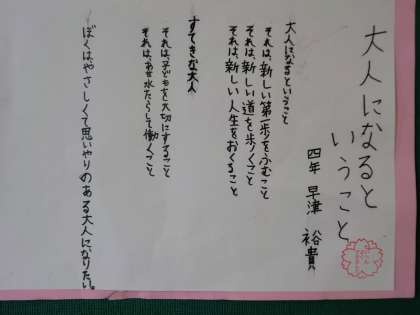 大人になると
いうこと
四年 早津 裕貴
大人になるということ
それは、新しい第一歩をふむこと
それは、新しい道を歩くこと
それは、新しい人生をおくること
すてきな大人
それは子どもを大切にすること
それは、あせ水たらして働くこと
ぼくは、やさしくて思いやりのある大人になりたい。